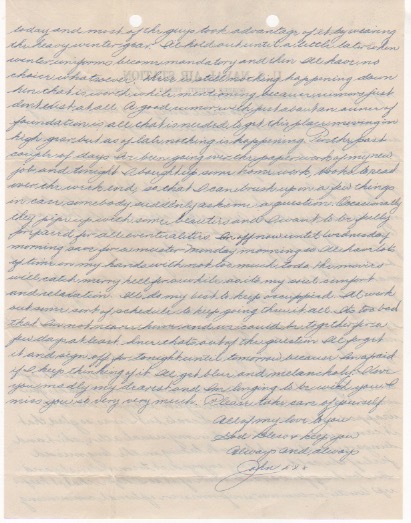 today and most of the guys took advantage of it by wearing
the heavy winter gear. I'll hold out until a little later when
winter uniforms become mandatory and then I'll have no
choice whatsoever. There is still nothing happening down
here that is worth while mentioning because rumors just
don't exist at all. A good rumor with just about an ounce of
foundation is all that is needed to get this place moving in
high gear but as of late nothing is happening. For the past
couple of days I've been going over the paper work of my new
job and tonight I brought up some home work, books to read
over the week end, so that I can brush up on a few things
in case somebody suddenly asks me a question. Occasionally
they pipe up with some beauties and I want to be fully
prepared for all eventualities. I'm off now until Wednesday
morning
of time on my hands with not too much to do. The movies
will catch merry hell for awhile as its my sole comfort
and relaxation. I'll do my best to keep occupied. I'll work
out some sort of schedule to keep going thru it all. Its too bad
that I'm not near home and we could be together for a
few days at least. Since thats out of the question I'll forget
it and sign off for tonight until tomorrow because I'm afraid
if I keep thinking of it I'll get blue and melancholy. I love
you madly my dearest and I'm longing to be with you. I
miss you so very very much. Please take care of yourself
All of my love to you
God bless & keep you
Always and always
John